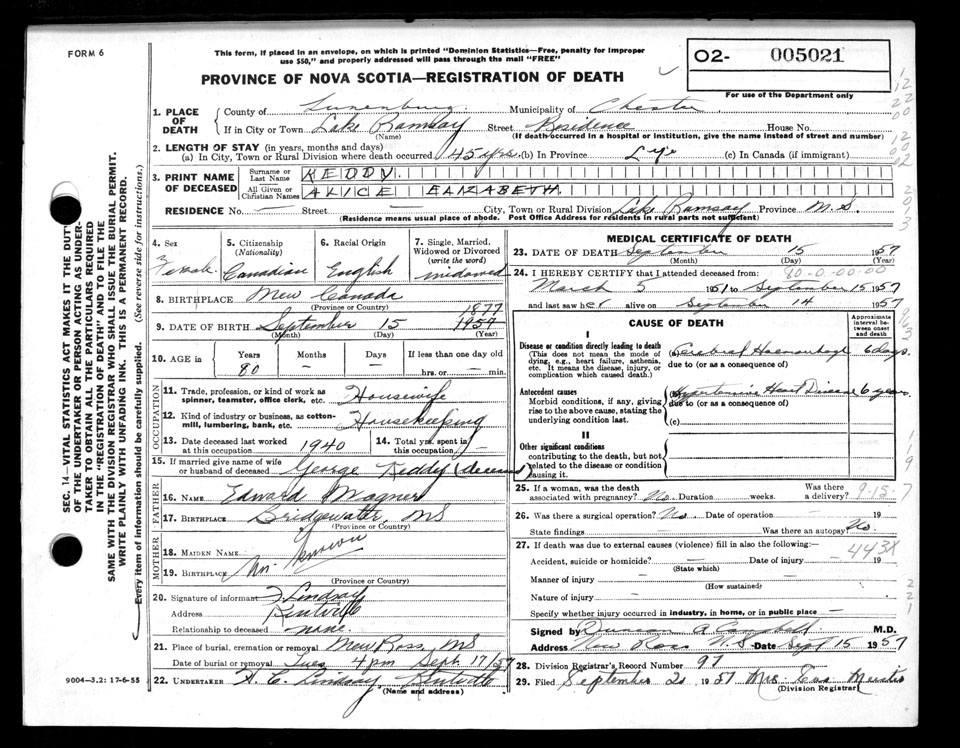 FORM 6
This form, if placed in an envelope, on which is printed "Dominion Statistics—Free, penalty for improper
use $50," and properly addressed will pass through the mail "FREE"
02- 005021
PROVINCE OF NOVA SCOTIA—REGISTRATION OF DEATH
For use of the Department only
1. PLACE OF DEATH County of Lunenburg Municipality of Chester
If in City or Town Lake Ramsay Street Residence House No.
(Name) (If death occurred in a hospital or institution, give the name instead of street and number)
2. LENGTH OF STAY (in years, months and days)
(a) In City, Town or Rural Division where death occurred 45 yrs. (b) In Province Life (c) In Canada (if immigrant)
3. PRINT NAME OF DECEASED Surname or Last Name KEDDY.
All Given or Christian Names ALICE ELIZABETH.
RESIDENCE No. — Street — City, Town or Rural Division Lake Ramsay Province N.S.
(Residence means usual place of abode. Post Office Address for residents in rural parts not sufficient)
4. Sex Female
5. Citizenship (Nationality) Canadian
6. Racial Origin English
7. Single, Married, Widowed or Divorced (write the word) widowed
8. BIRTHPLACE New Canada
(Province or Country)
1877
9. DATE OF BIRTH September 15 1957
(Month) (Day) (Year)
10. AGE in Years Months Days If less than one day old
80 — — hrs. or — min.
OCCUPATION
11. Trade, profession, or kind of work as spinner, teamster, office clerk, etc. Housewife
12. Kind of industry or business, as cotton-mill, lumbering, bank, etc. Housekeeping
13. Date deceased last worked at this occupation 1940 14. Total yrs. spent in this occupation
15. If married give name of wife or husband of deceased George Keddy (deceased)
FATHER
16. NAME Edward Wagner
17. BIRTHPLACE Bridgewater, NS
(Province or Country)
MOTHER
18. MAIDEN NAME
19. BIRTHPLACE
(Province or Country)
20. Signature of informant Lindsay
Address Kentville
Relationship to deceased none.
21. Place of burial, cremation or removal New Ross, NS
Date of burial or removal Tues 4 pm Sept. 17/57
22. UNDERTAKER H. C. Lindsay Kentville
(Name and address)
9004—3.2: 17-6-55
MEDICAL CERTIFICATE OF DEATH
23. DATE OF DEATH September 15 1957
(Month) (Day) (Year)
24. I HEREBY CERTIFY that I attended deceased from: 80-0-00-00
March 5 1951 to September 15 1957
and last saw her alive on September 14 1957
CAUSE OF DEATH
Approximate interval between onset and death
I
Disease or condition directly leading to death
(This does not mean the mode of dying, e.g., heart failure, asthenia, etc. It means the disease, injury, or complication which caused death.)
(a) Cerebral Haemorrhage 6 days.
due to (or as a consequence of)
Antecedent causes
Morbid conditions, if any, giving rise to the above cause, stating the underlying condition last.
(b) Hypertensive Heart Disease 6 years.
due to (or as a consequence of)
(c)
II
Other significant conditions
contributing to the death, but not related to the disease or condition causing it.
25. If a woman, was the death associated with pregnancy? No. Duration weeks. Was there a delivery?
9-15-7
26. Was there a surgical operation? No Date of operation — 19
State findings Was there an autopsy? No.
27. If death was due to external causes (violence) fill in also the following:—
443X
Accident, suicide or homicide? — Date of injury — 19
(State which)
Manner of injury —
(How sustained)
Nature of injury —
Specify whether injury occurred in industry, in home, or in public place —
Signed by Duncan A Campbell M.D.
Address New Ross N.S. Date Sept 15 1957
28. Division Registrar's Record Number 97
29. Filed September 20 1957 Mrs.
(Division Registrar)
SEC. 14—VITAL STATISTICS ACT MAKES IT THE DUTY
OF THE UNDERTAKER OR PERSON ACTING AS UNDER-
TAKER TO OBTAIN ALL THE PARTICULARS REQUIRED
IN THE "REGISTRATION OF DEATH" AND TO FILE THE
SAME WITH THE DIVISION REGISTRAR WHO SHALL ISSUE THE BURIAL PERMIT.
WRITE PLAINLY WITH UNFADING INK. THIS IS A PERMANENT RECORD.
Every item of information should be carefully supplied. (See reverse side for instructions.)